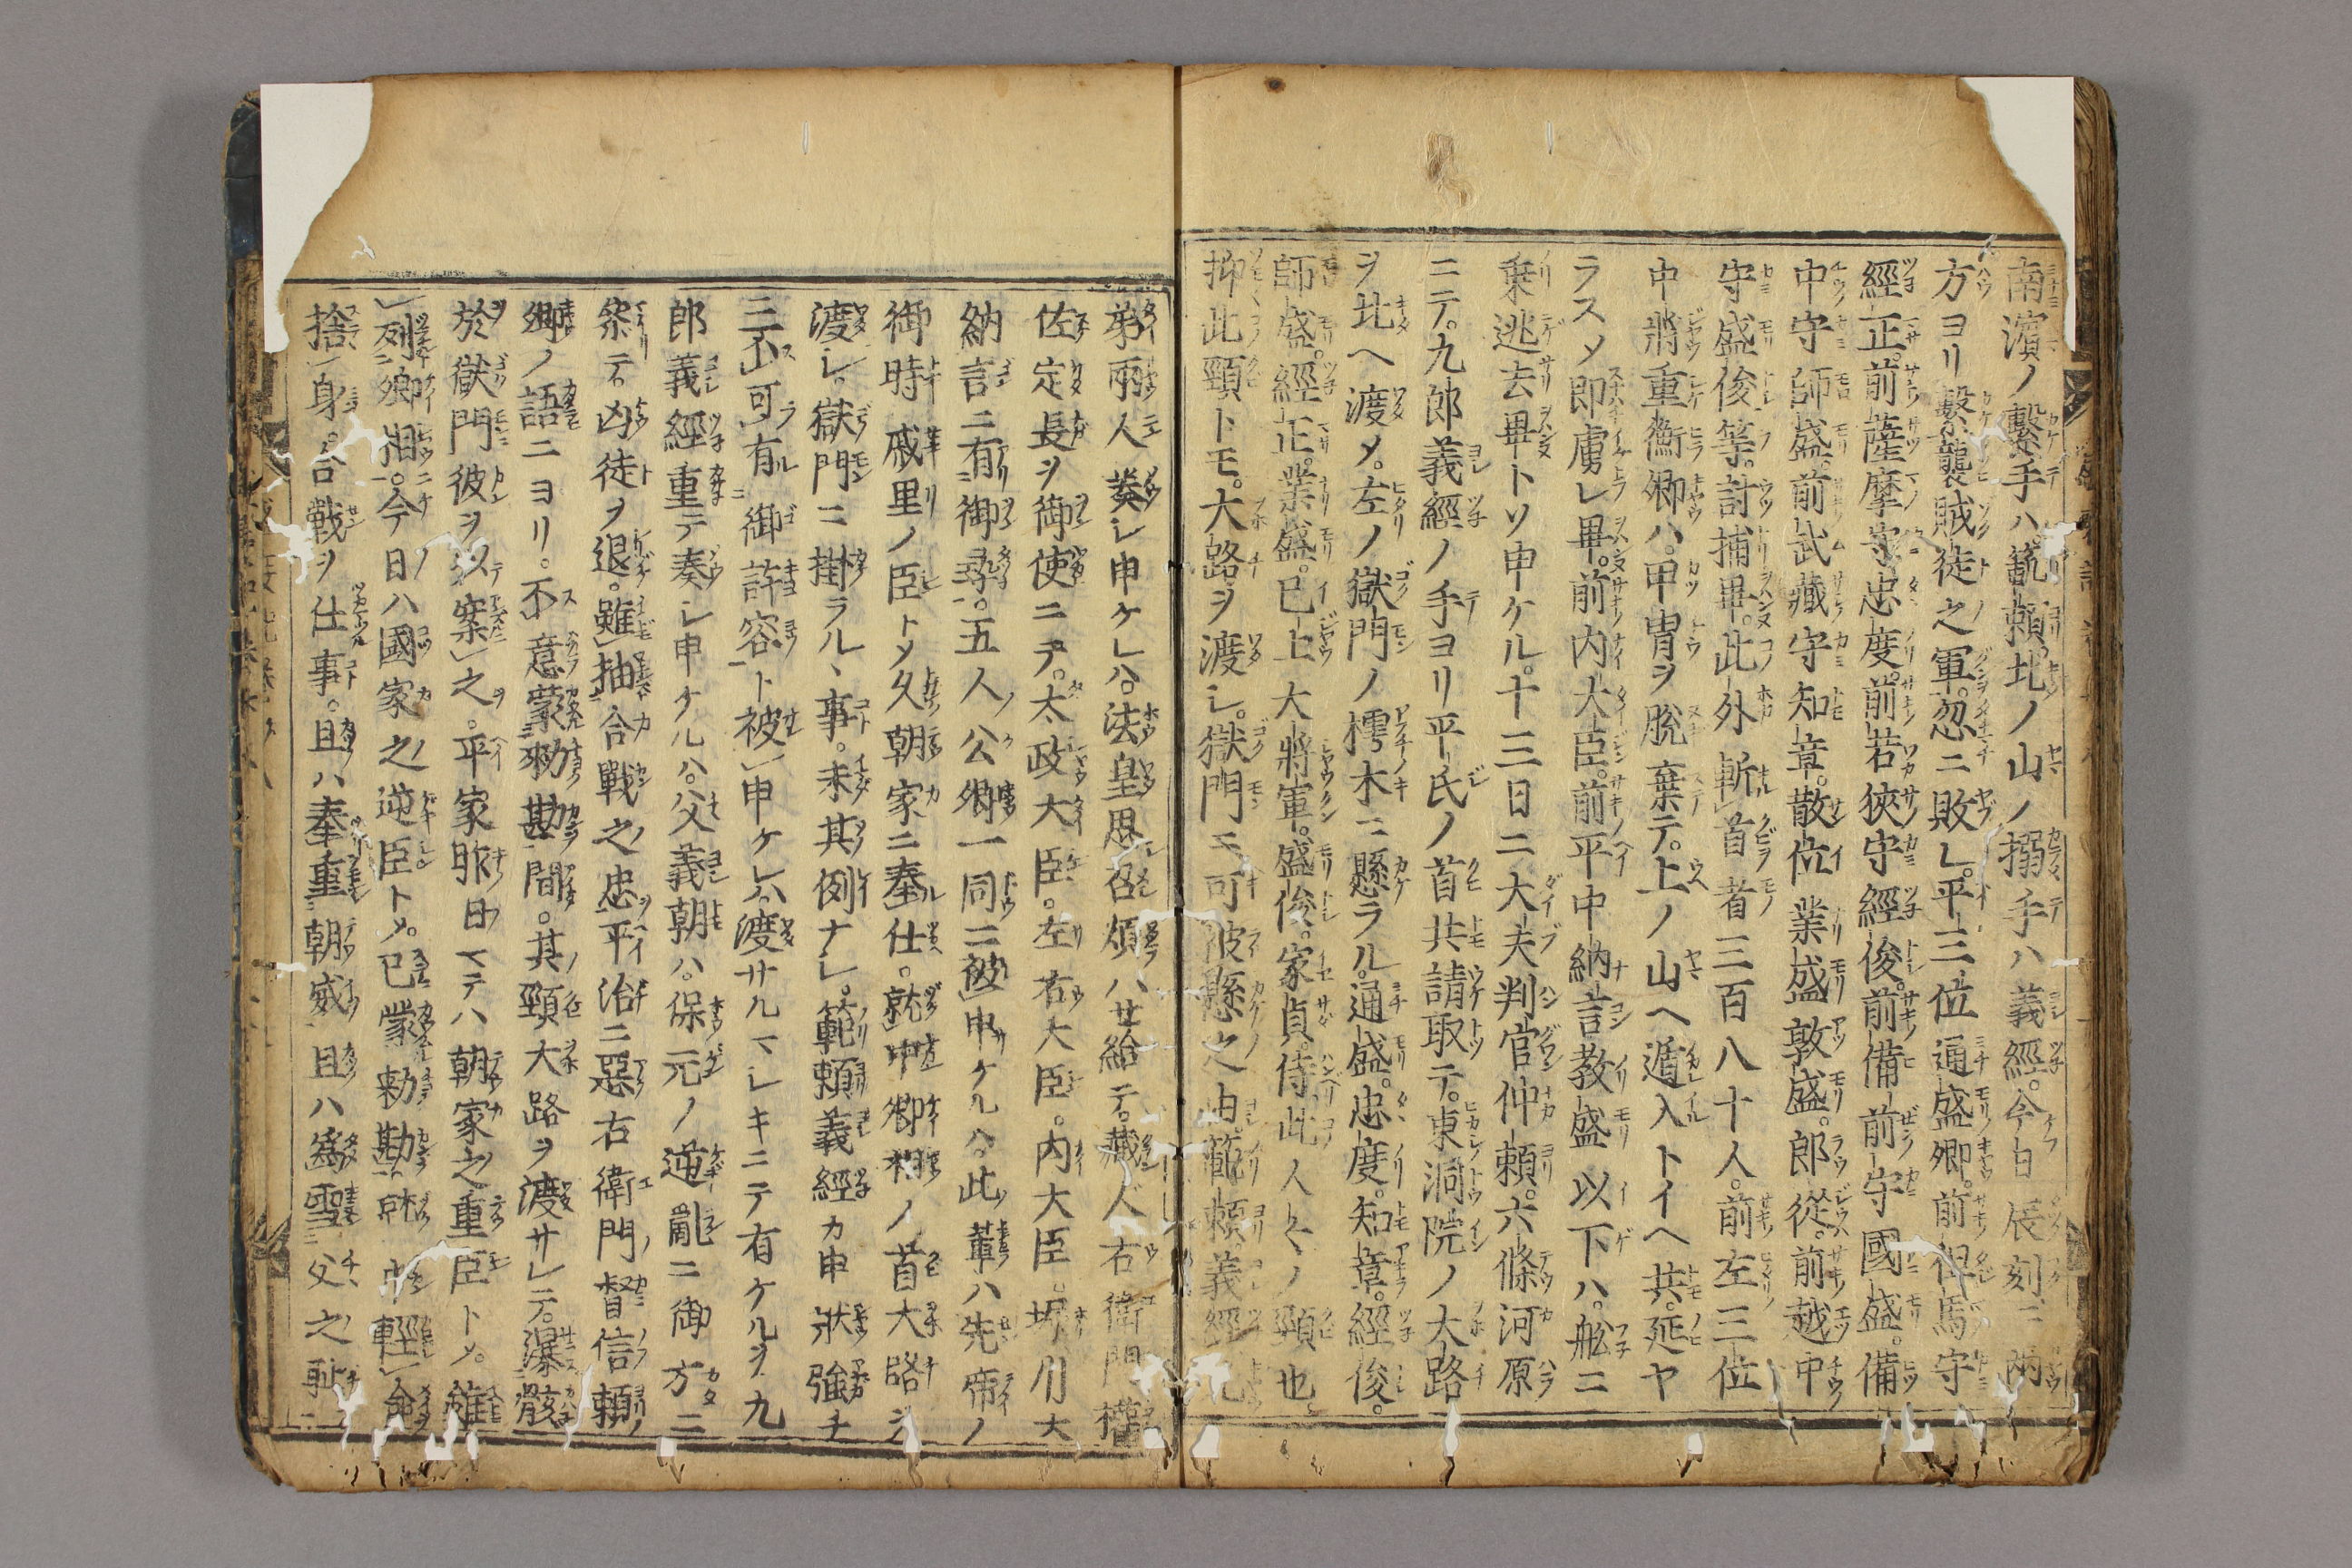 南濱ノ繫手ハ。範頼。北ノ山ノ搦手ハ義經。今日辰刻ニ兩
方ヨリ繫襲賊徒之軍。忽ニ敗レ。平三位通盛卿。前但馬守
經正。前薩摩守忠度。前若狹守經俊。前備前守國盛。備
中守師盛。前武藏守知章。散位業盛敦盛。郎從。前越中
守盛俊等。討捕畢。此外斬首者三百八十人。前左三位
中將重衡卿ハ。甲冑ヲ脫棄テ。上ノ山ヘ遁入トイヘ共。延ヤ
ラスメ即虜レ畢。前内大臣。前平中納言教盛以下ハ。舩ニ
乗逃去畢トソ申ケル。十三日ニ大夫判官仲頼。六條河原
ニテ。九郎義經ノ手ヨリ平氏ノ首共請取テ。東洞院ノ大路
ヲ北ヘ渡メ。左ノ獄門ノ樗木ニ懸ラル。通盛。忠度。知章。經俊。
師盛。經正。業盛。已上大將軍。盛俊。家貞。侍。此人々ノ頸也。
抑此頸トモ。大路ヲ渡レ。獄門ニ可被懸之由。範頼。義經
弟兩人奏レ申ケレハ。法皇思召煩ハせ給テ。藏人右衛門權
佐定長ヲ御使ニテ。太政大臣。左右大臣。内大臣。堀川大
納言ニ有御尋。五人ノ公卿一同ニ被申ケルハ。此輩ハ先帝ノ
御時戚里ノ臣トメ久朝家ニ奉仕。就中卿相ノ首大路ヲ
渡レ。獄門ニ掛ラルヽ事。未其例ナレ。範頼義經カ申狀強チ
三不可有御許容ト被申ケレハ渡サルマレキニテ有ケルヲ九
郎義經重テ奏レ申ケルハ。父義朝ハ。保元ノ逆亂ニ御方ニ
祭テ。凶徒ヲ退。雖抽合戰之忠平治ニ惡右衛門督信頼ノ
卿ノ語ニヨリ。不意蒙勅勘間。其頸大路ヲ渡サレテ。瀑骸
於獄門彼ヲ以案之。平家昨日マテハ朝家之重臣トメ。雖
列卿相。今日ハ國家之逆臣トメ。已蒙勅勘
捨身。合戰ヲ仕事。且ハ奉重朝威且ハ爲雪父之耻